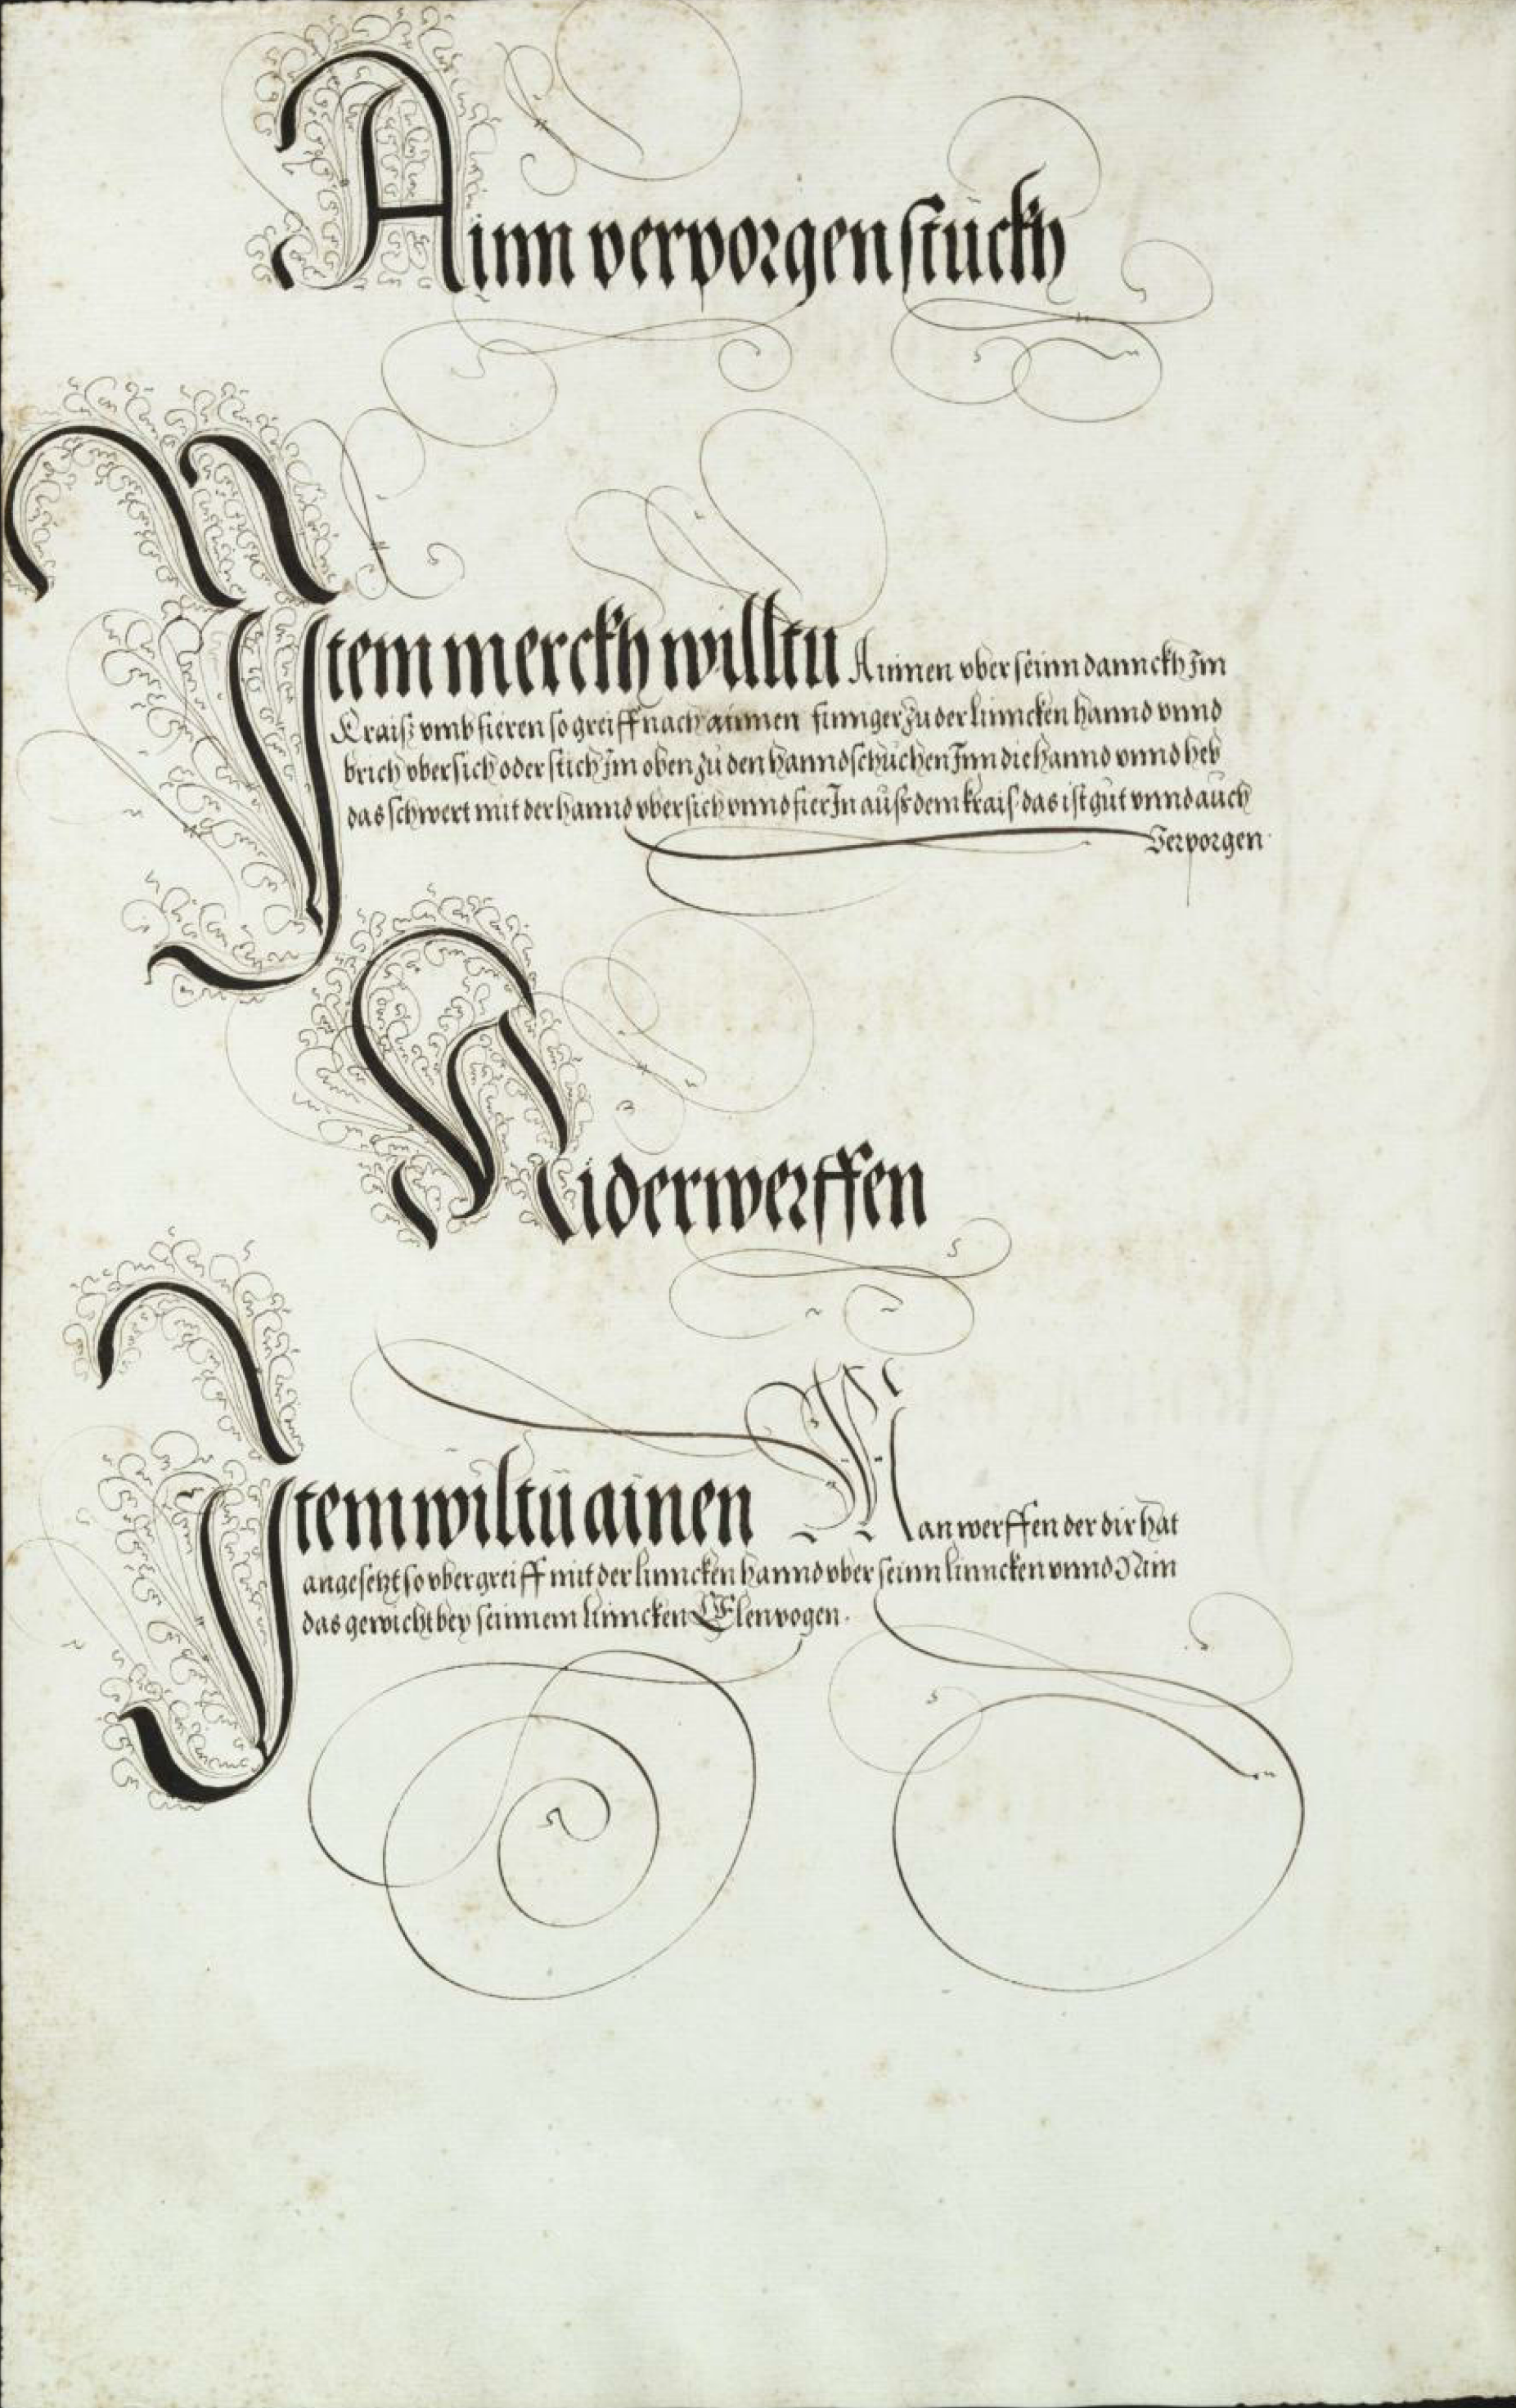 Ainn verporgen stückh
Ytem merckh willtu Ainnen vber seinn dannckh Im
Kraiß vmb fieren so greiff nach ainnen finnger zu der linncken hannd vnnd
brich vber sich oder stich Im oben zů den hanndschůchen Inn die hannd vnnd heb
das schwert mit der hannd vber sich vnnd fier In aůß dem krais das ist gůt vnnd aůch
Verporgen
Niderwerffen
Ytem wiltü ainen Man werffen der dir hat
angesetzt so vbergreiff mit der linncken hannd vber seinn linncken vnnd Nim
das gewicht bey seinnem linncken Elenpogen.